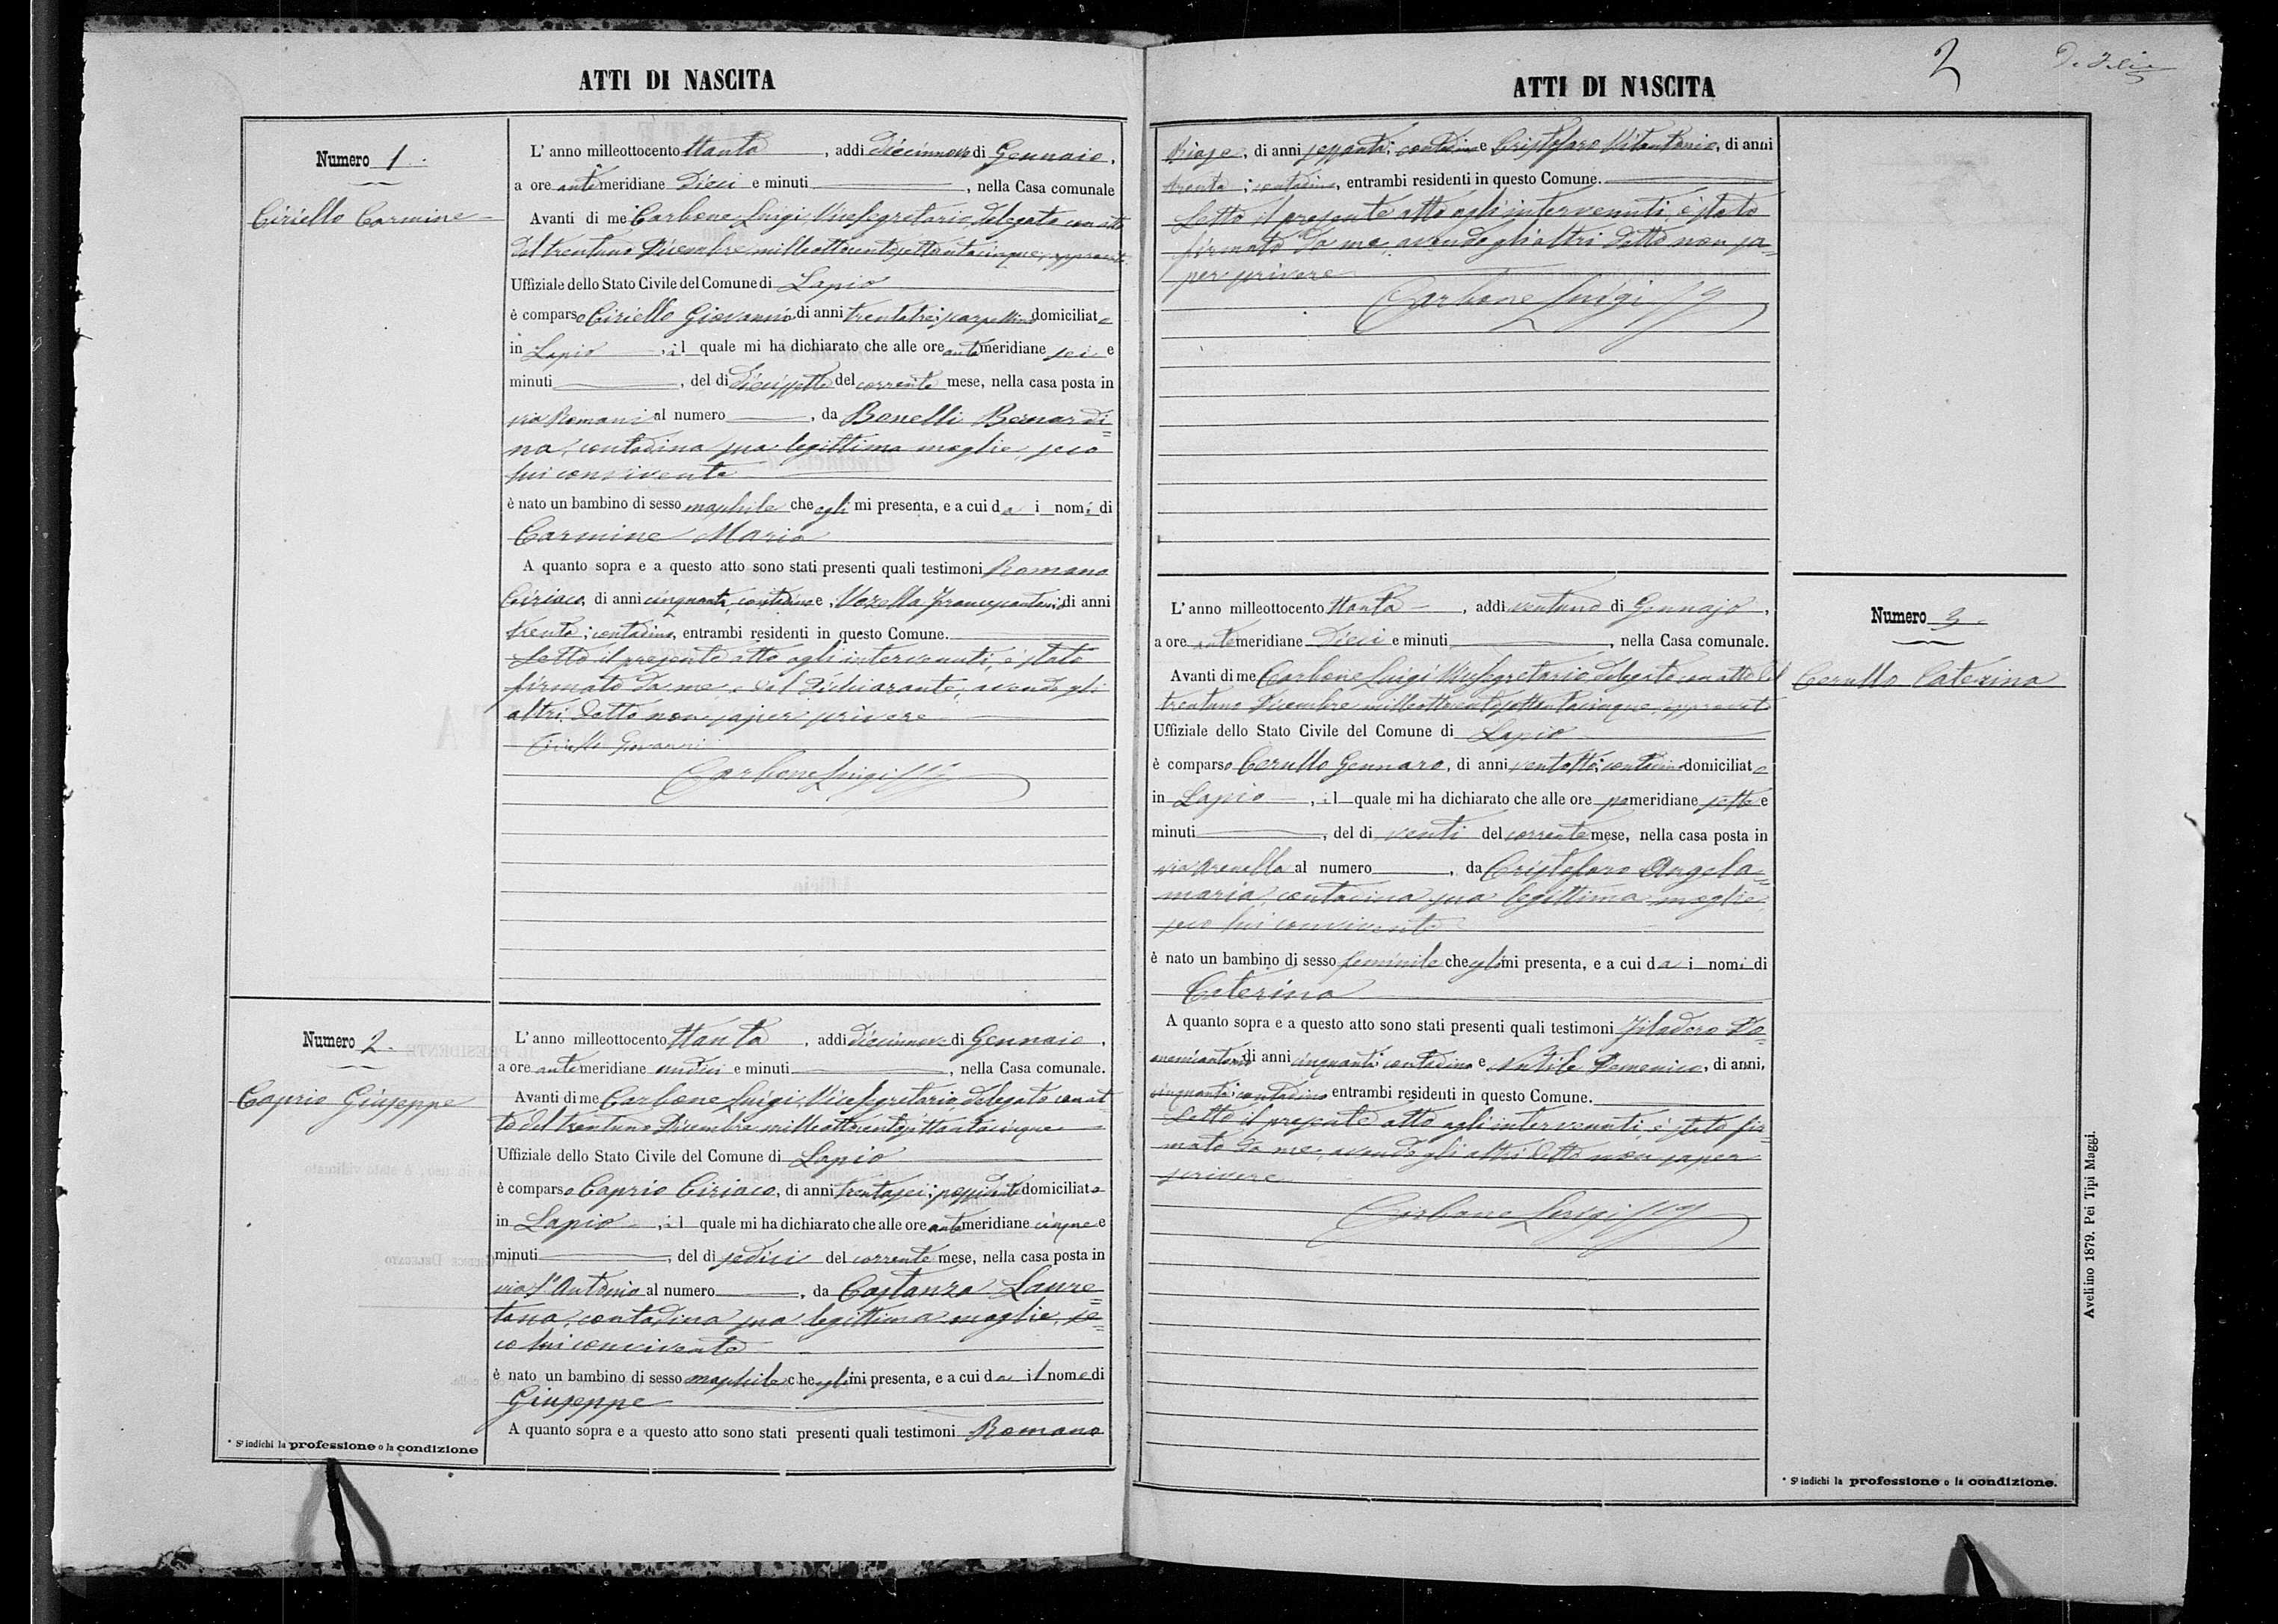 ATTI DI NASCITA
Numero 1.
Ciriello Carmine
L' anno milleottocento ttanta, addi diecinnove di Gennaio,
a ore antimeridiane dieci e minuti, nella Casa comunale
Avanti di me Carbone Luigi, Vicesegretario, delegato con atto
del trentuno Dicembre milleottocentosettantacinque, approvato
Uffiziale dello Stato Civile del Comune di Lapio
è comparso Ciriello Giovanni, di anni trentatre; scarpellino domiciliato
in Lapio, il quale mi ha dichiarato che alle ore antimeridiane sei e
minuti, del di diecissette del corrente mese, nella casa posta in
via Romani al numero, da Bonelli Bernardi=
na, contadina sua legittima moglie, seco
lui convivente
è nato un bambino di sesso maschile che egli mi presenta, e a cui da i nomi di
Carmine Maria
A quanto sopra e a questo atto sono stati presenti quali testimoni Romano
Ciriaco, di anni cinquanta, contadino e Vozella Francescantonio di anni
trenta; contadino, entrambi residenti in questo Comune.
Letto il presente atto agli intervenuti, è stato
firmato da me, e dal dichiarante, avendo gli
altri detto non saper scrivere
Ciriello Giovanni
Carbone Luigi
Numero 2.
Caprio Giuseppe
L'anno milleottocento ttanta, addi diecinnove di Gennaio,
a ore antimeridiane undici e minuti, nella Casa comunale.
Avanti di me Carbone Luigi, Vicesegretario, delegato con at=
to del trentuno Dicembre milleottocentosettantacinque
Uffiziale dello Stato Civile del Comune di Lapio
è comparso Caprio Ciriaco, di anni trentasei; possidente domiciliato
in Lapio, il quale mi ha dichiarato che alle ore antimeridiane cinque e
minuti, del di sedici del corrente mese, nella casa posta in
via S. Antonio al numero, da Costanza Laure=
tana, contadina sua legittima moglie, se=
co lui convivente
è nato un bambino di sesso maschile che egli mi presenta, e a cui da il nome di
Giuseppe
A quanto sopra e a questo atto sono stati presenti quali testimoni Romano
* Si indichi la professione o la condizione
ATTI DI NASCITA
2
Biase, di anni sessanta; contadino e Cristofaro Vitantonio, di anni
trenta; contadino, entrambi residenti in questo Comune.
Letto il presente atto agli intervenuti, è stato
firmato da me, avendo gli altri detto non sa=
per scrivere
Carbone Luigi
Numero 3.
Cerullo Caterina
L'anno milleottocento ttanta, addi ventuno di Gennajo,
a ore antimeridiane dieci e minuti, nella Casa comunale.
Avanti di me Carbone Luigi Vicesegretario, delegato con atto del
trentuno Dicembre milleottocentosettantacinque, approvato
Uffiziale dello Stato Civile del Comune di Lapio
è comparso Cerullo Gennaro, di anni ventotto; contadino domiciliato
in Lapio, il quale mi ha dichiarato che alle ore pomeridiane sette e
minuti, del di venti del corrente mese, nella casa posta in
via Arenella al numero, da Cristofaro Angela=
maria, contadina sua legittima moglie,
seco lui convivente
è nato un bambino di sesso feminile che egli mi presenta, e a cui da i nomi di
Caterina
A quanto sopra e a questo atto sono stati presenti quali testimoni Filadoro Do=
di anni cinquanta contadino e Nutile Domenico, di anni,
cinquanta; contadino entrambi residenti in questo Comune.
Letto il presente atto agli intervenuti, è stato fir=
mato da me, avendo gli altri detto non saper
scrivere
Carbone Luigi
Avellino 1879. Pei Tipi Maggi.
* Si indichi la professione o la condizione.